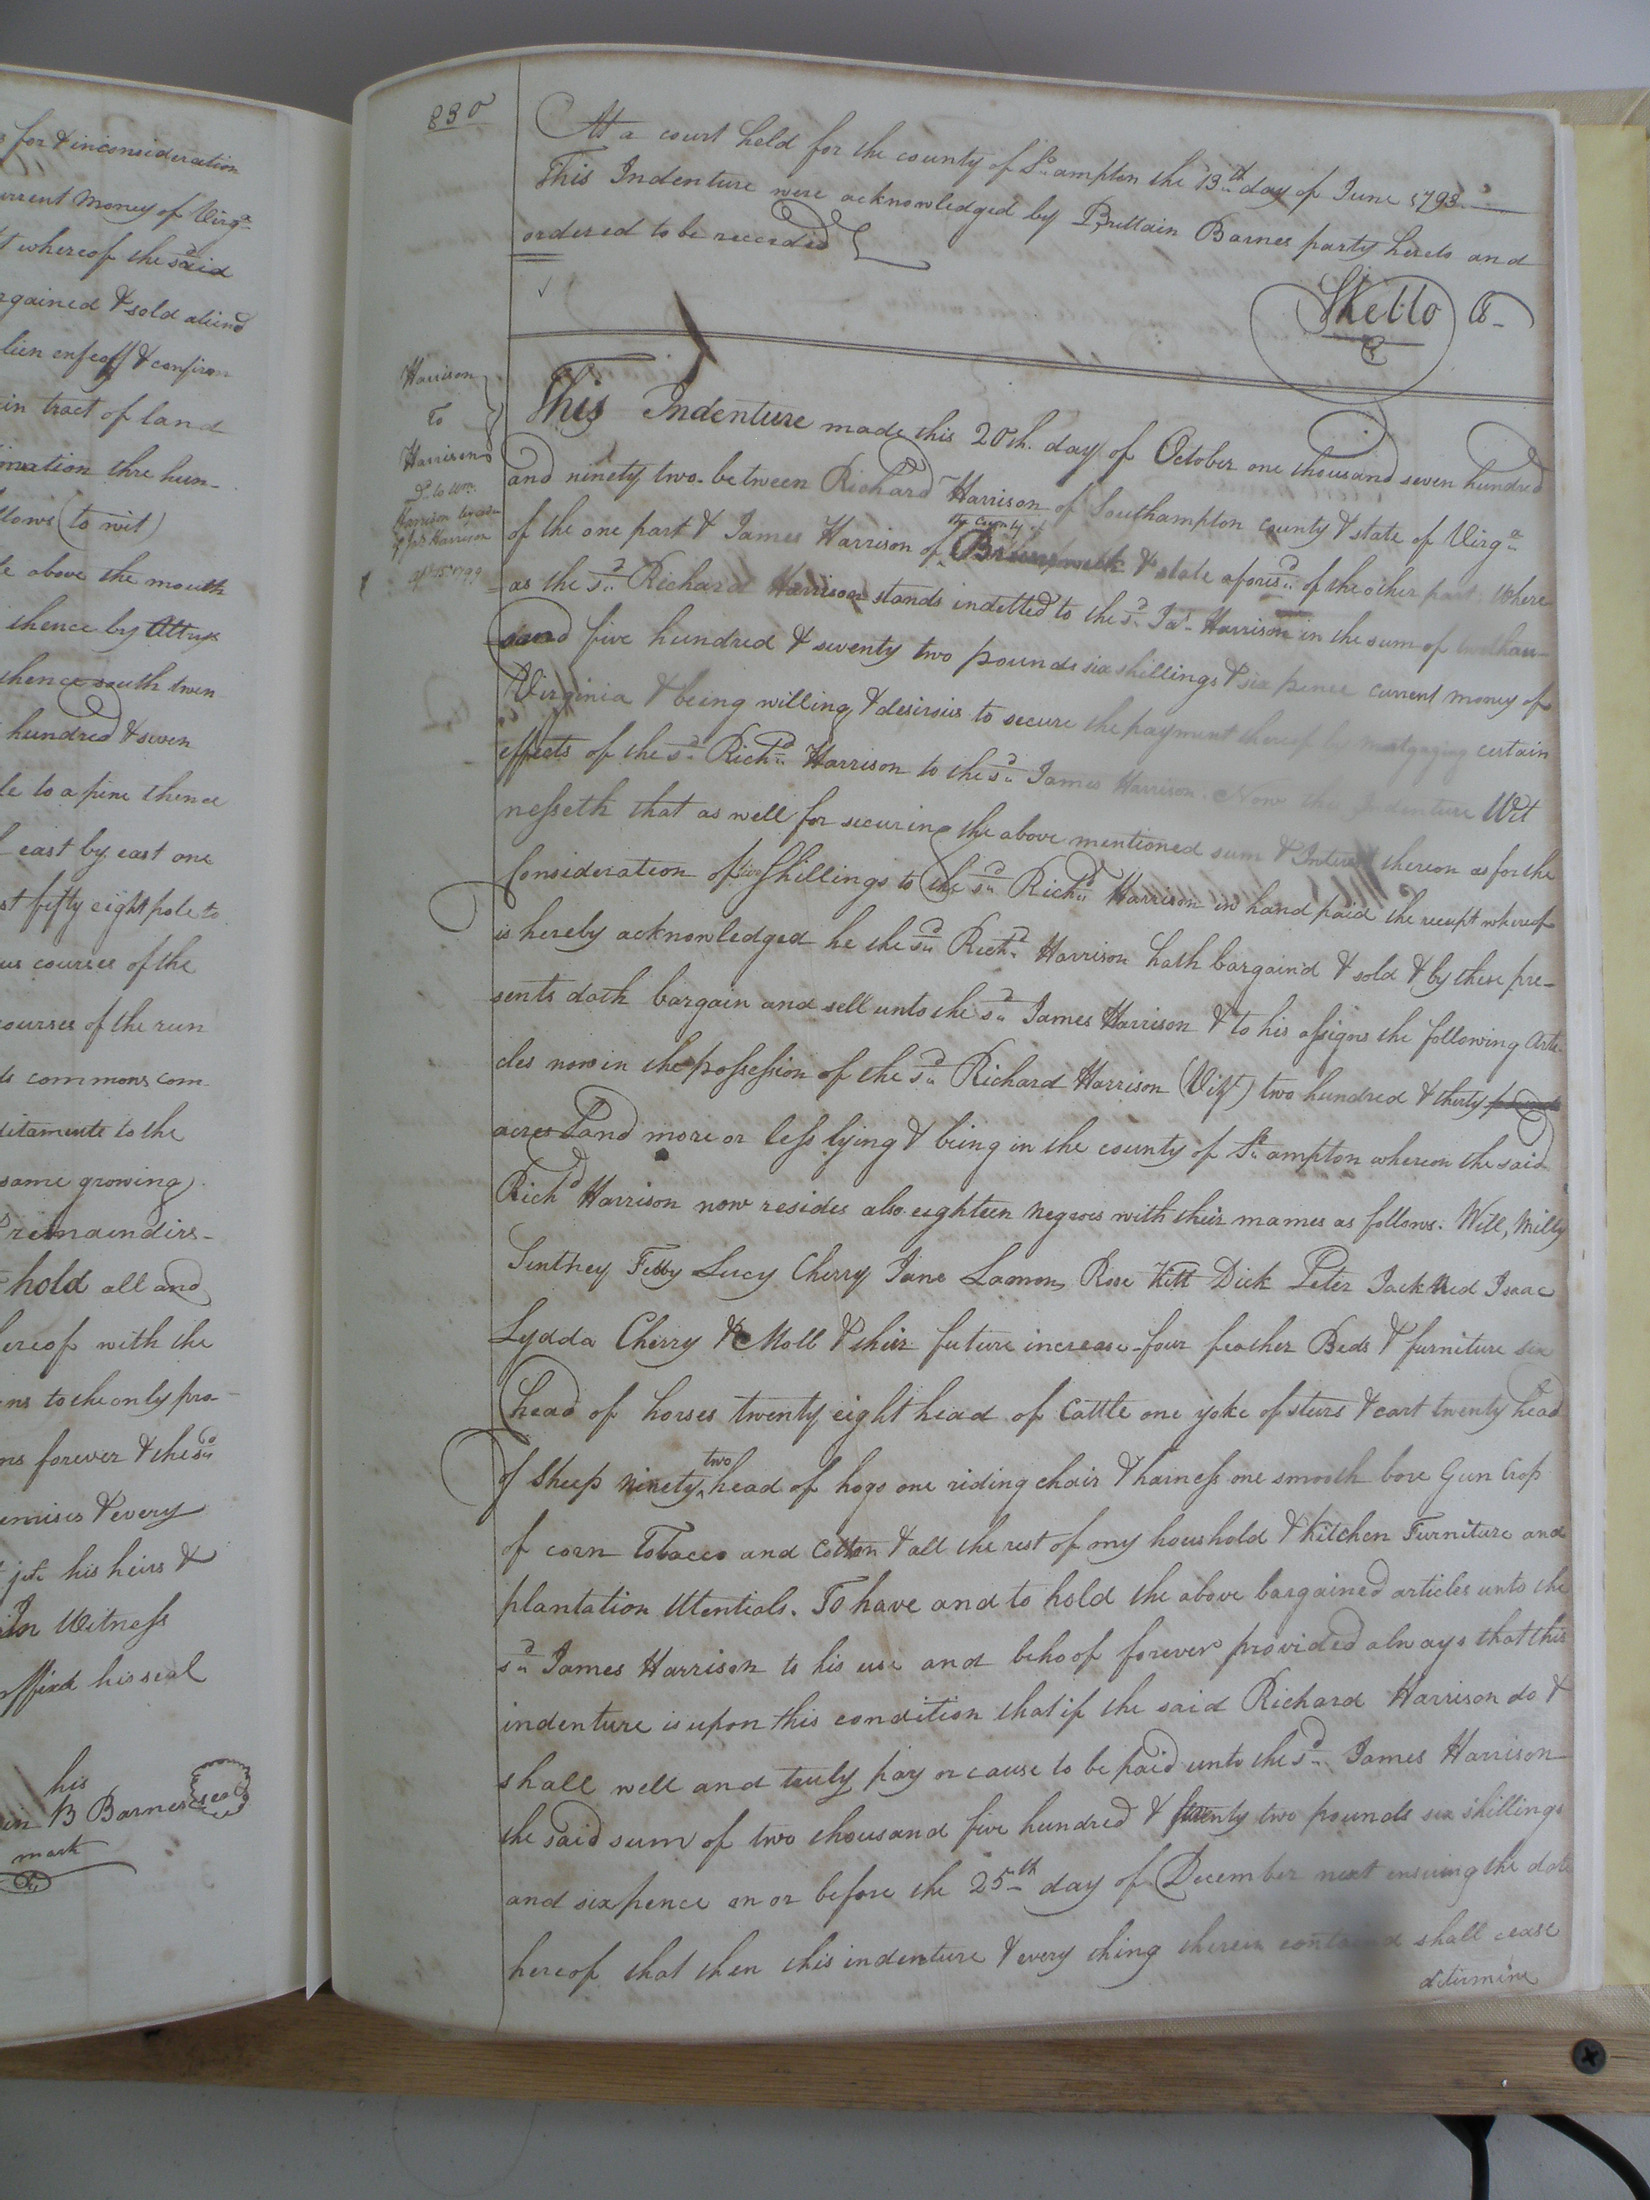 s for & inconsideration
urrent Money of Virga
t whereof the said
rgained & sold aliend
lien enfeoff & confirm
in tract of land
ination thre hun-
llows (to wit)
le above the mouth
thence by
thence south twen
hundred & seven
le to a pine thence
l east by east one
st fifty eight pole to
us courses of the
courses of the run
ds commons com-
ditaments to the
same growing
remaindirs-
hold all and
hereof with the
ns to the only pro-
ns forever & the sd
emises & every
his heirs &
In Witness
affixd his seal
his
in B Barnes seal
mark
830
At a court held for the county of So.ampton the 13th day of June 1793
This Indenture were acknowledged by Brittain Barnes party hereto and
ordered to be recorded
Harrison
To
Harrison
Dd. to Wm.
Harrison
of Jas Harrison
1799
This Indenture made this 20th. day of October one thousand seven hundred
and ninety two between Richard Harrison of Southampton County & state of Virga
the county of
of the one part & James Harrison of Brunswick & state aforesd of the other part. Where
as the sd Richard Harrison stands indetted to the sd Jas Harrison in the sum of twothou-
sand five hundred & seventy two pounds six shillings & six pence current money of
Virginia & being willing & desirous to secure the payment thereof by mortgaging certain
effects of the sd Richd Harrison to the sd James Harrison. Now this Indenture Wit
nesseth that as well for securing the above mentioned sum & Interest thereon as for the
Consideration of five Shillings to the sd Richd Harrison in hand paid the receipt whereof
is hereby acknowledged he the sd Richd Harrison hath bargain'd & sold & by these pre-
sents doth bargain and sell unto the sd James Harrison & to his assigns the following Arti-
cles now in the possession of the sd Richard Harrison (Vizt) two hundred & thirty
acres Land more or less lying & being in the county of So ampton whereon the said
Richd Harrison now resides also eighteen negroes with their mames as follows. Will, Milly
Sinthey Febby Lucy Cherry Jane Lamon, Rose Kitt Dick Peter Jack Ned Isaac
Lydda Cherry & Moll & their future increase four feather Beds & furniture six
head of horses twenty eight head of Cattle one yoke of sturs & cart twenty head
two
of Sheep Ninety head of hogs one riding chair & harness one smooth bore Gun Crop
of corn Tobacco and Cotton & all the rest of my houshold & Kitchen Furniture and
plantation Utentials. To have and to hold the above bargained articles unto the
sd James Harrison to his use and behoof forever provided always that this
indenture is upon this condition that if the said Richard Harrison do &
shall well and truly pay or cause to be paid unto the sd James Harrison
the said sum of two thousand five hundred & seventy two pounds six shillings
and sixpence on or before the 25th day of December next ensuing the date
hereof that then this indenture & every thing therein contained shall cease
determine